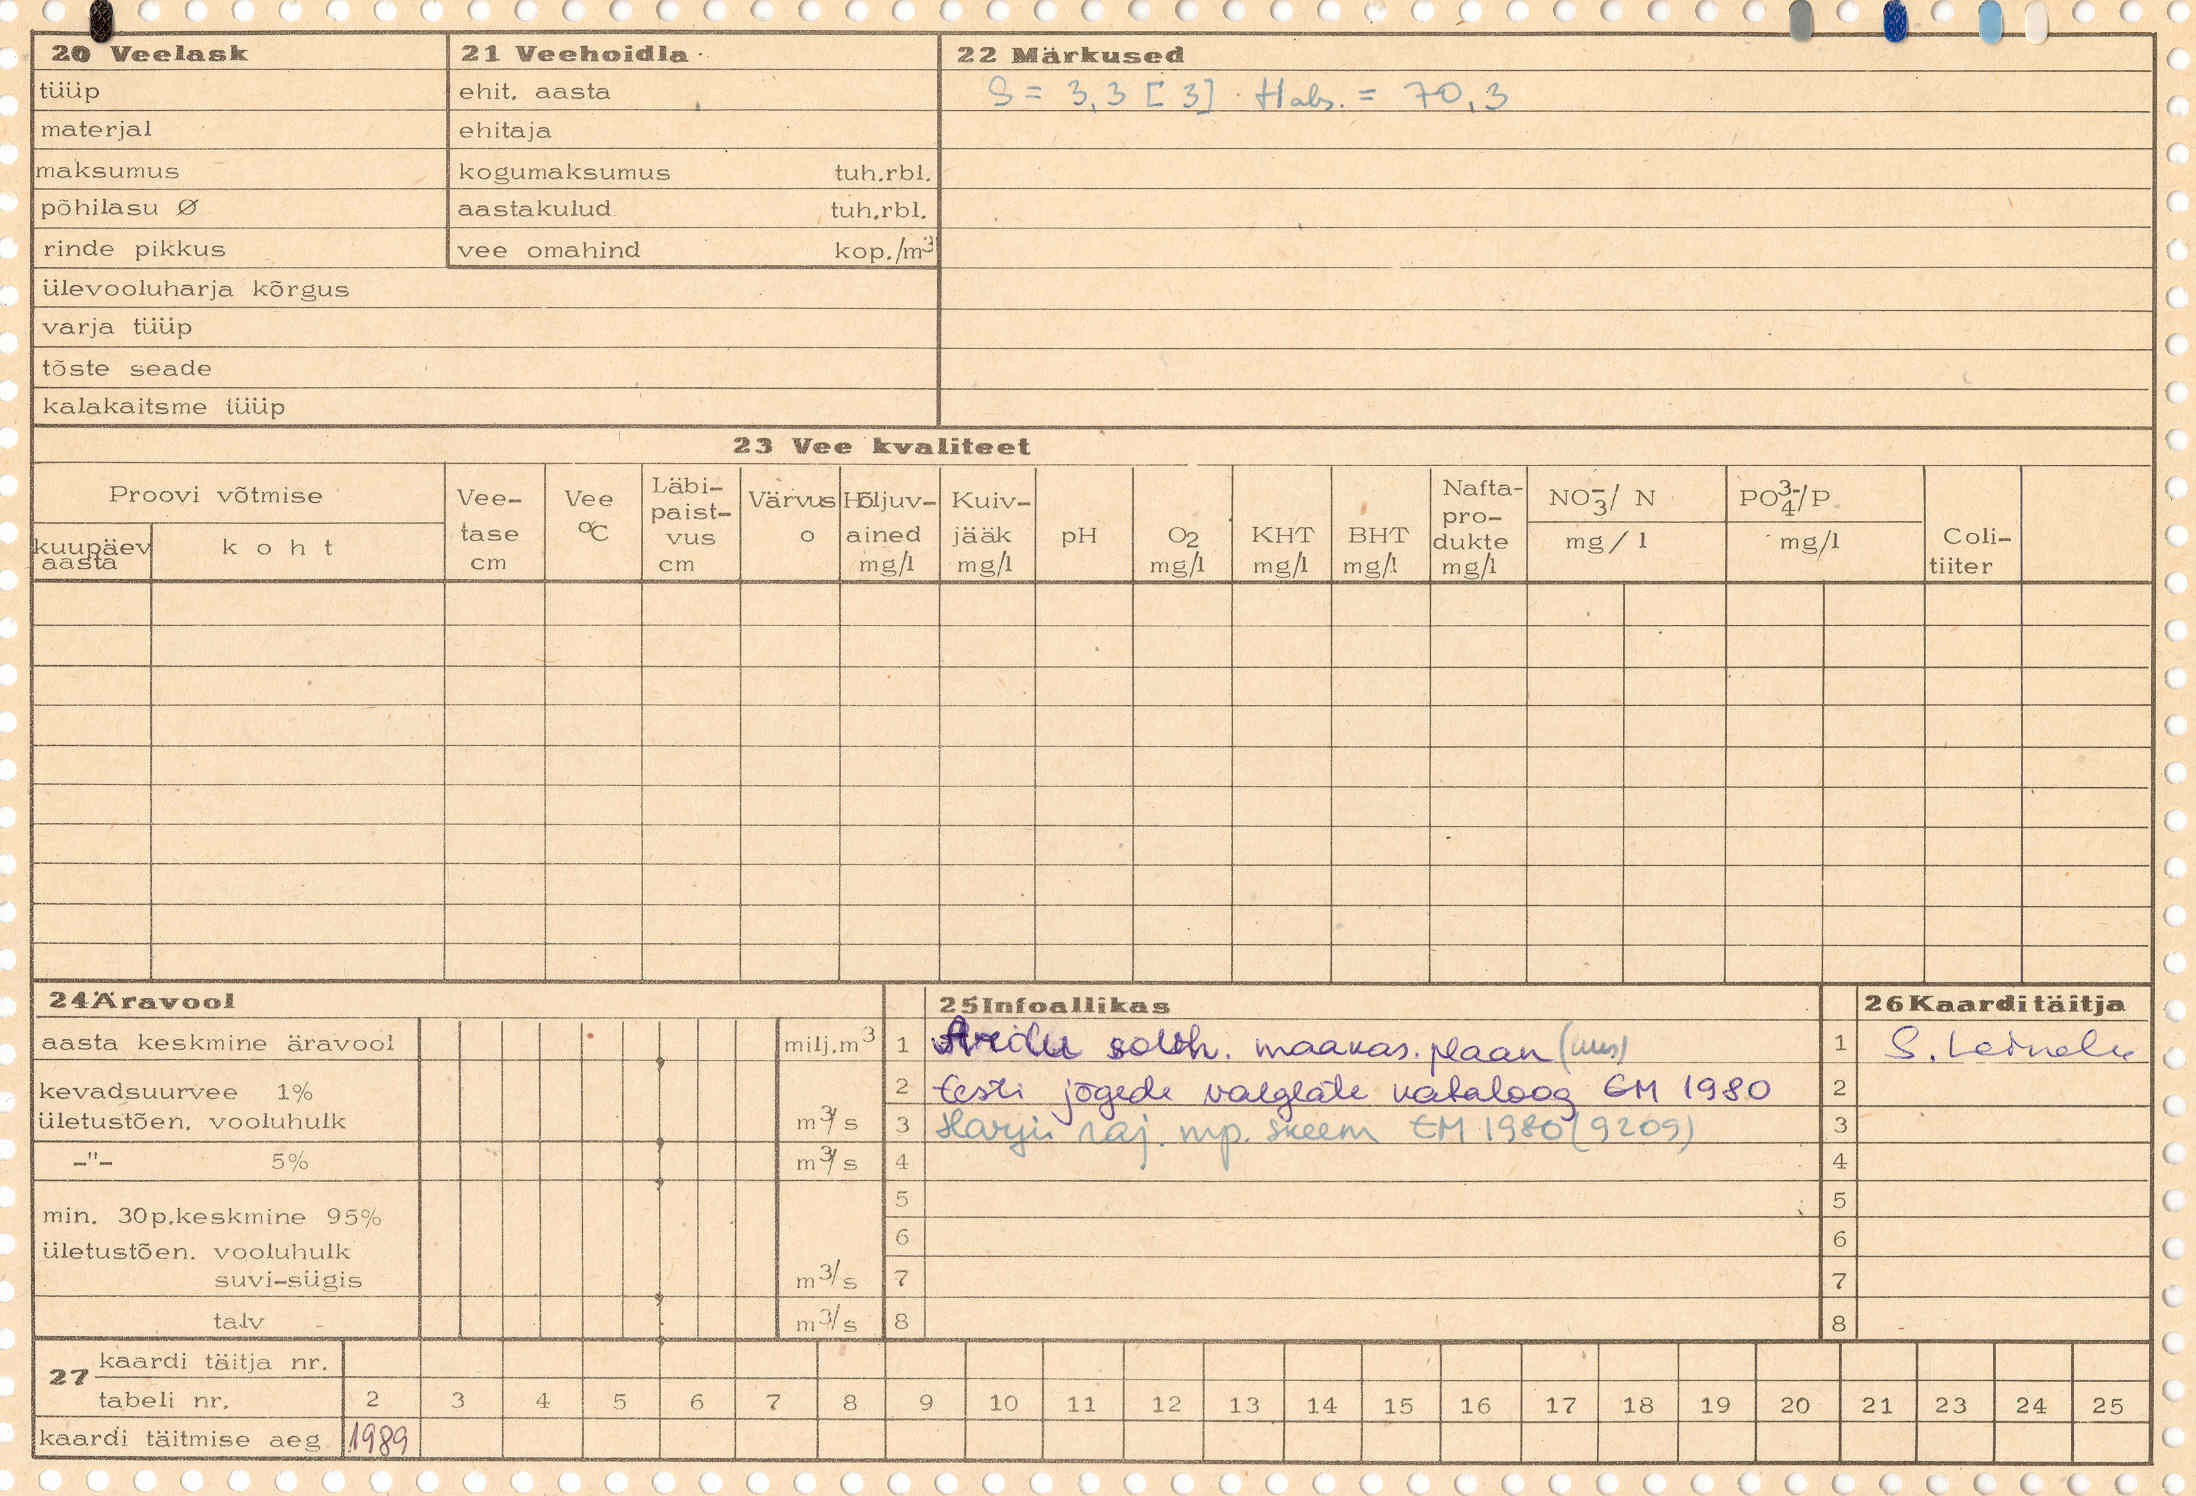 20 Veelask
tüüp
materjal
maksumus
põhilasu Ø
rinde pikkus
ülevooluharja kõrgus
varja tüüp
tõste seade
kalakaitsme tüüp
21 Veehoidla
ehit. aasta
ehitaja
kogumaksumus tuh.rbl.
aastakulud tuh.rbl.
vee omahind kop./m³
22 Märkused
S = 3,3 [3] Habs. = 70,3
23 Vee kvaliteet
Proovi võtmise
kuupäev aasta
koht
Vee-
tase
cm
Vee
°C
Läbi-
paist-
vus
cm
Värvus
o
Hõljuv-
ained
mg/l
Kuiv-
jääk
mg/l
pH
O2
mg/l
KHT
mg/l
BHT
mg/l
Nafta-
pro-
dukte
mg/l
NO3⁻/ N
mg/l
PO4³⁻/P
mg/l
Coli-
tiiter
24 Äravool
aasta keskmine äravool milj.m³
kevadsuurvee 1%
ületustõen. vooluhulk m³/s
-"- 5% m³/s
min. 30p.keskmine 95%
ületustõen. vooluhulk
suvi-sügis m³/s
talv m³/s
25 Infoallikas
1 Ardu sovh. maakas. plaan (uus)
2 Eesti jõgede valglate kataloog EM 1980
3 Harju raj. mp. skeem EM 1980 (9209)
4
5
6
7
8
26 Kaarditäitja
1 S.
2
3
4
5
6
7
8
27
kaardi täitja nr.
tabeli nr. 2 3 4 5 6 7 8 9 10 11 12 13 14 15 16 17 18 19 20 21 23 24 25
kaardi täitmise aeg 1989